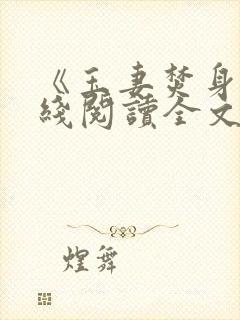 《玉妻焚身
綫閱讀全文
煌舞